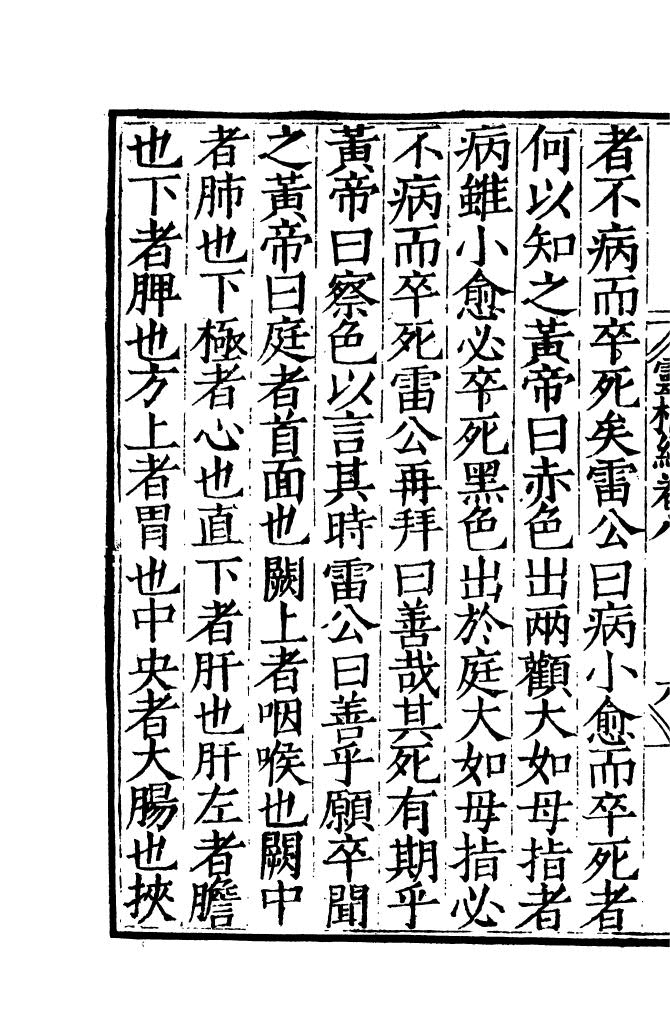 靈樞經卷八
者不病而卒死矣雷公曰病小愈而卒死者
何以知之黃帝曰赤色出兩顴大如母指者
病雖小愈必卒死黑色出於庭大如母指必
不病而卒死雷公再拜曰善哉其死有期乎
黃帝曰察色以言其時雷公曰善乎願卒聞
之黃帝曰庭者首面也闕上者咽喉也闕中
者肺也下極者心也直下者肝也肝左者膽
也下者脾也方上者胃也中央者大腸也挾